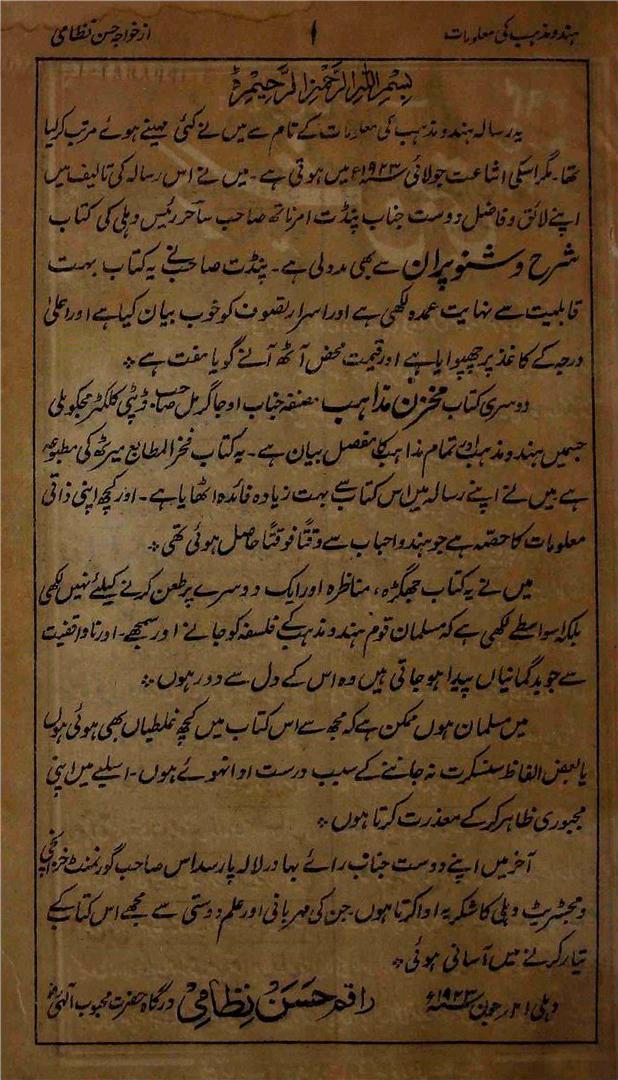 ہندو مذہب کی معلومات
۱
از خواجہ حسن نظامی
بسم اللہ الرحمن الرحیم
یہ رسالہ ہندو مذہب کی معلومات کے نام سے میں نے کئی مہینے ہوئے مرتب کر لیا
تھا۔ مگر اسکی اشاعت جولائی ۱۹۲۳ء میں ہوتی ہے۔ میں نے اس رسالہ کی تالیف میں
اپنے لائق و فاضل دوست جناب پنڈت امرناتھ صاحب ساحر رئیس دہلی کی کتاب
شرح وشنو پران سے بھی مدد لی ہے۔ پنڈت صاحب نے یہ کتاب بہت
قابلیت سے نہایت عمدہ لکھی ہے اور اسرار تصوف کو خوب بیان کیا ہے اور اعلیٰ
درجہ کے کاغذ پر چھپوایا ہے اور قیمت محض آٹھ آنے گویا مفت ہے ⁘
دوسری کتاب مخزن مذاہب مصنفہ جناب اوجاگر مل صاحب ڈپٹی کلکٹر
جسمیں ہندو مذہب اور تمام مذاہب کا مفصل بیان ہے۔ یہ کتاب فخر المطابع میرٹھ کی مطبوعہ
ہے میں نے اپنے رسالہ میں اس کتاب سے بہت زیادہ فائدہ اٹھایا ہے۔ اور کچھ اپنی ذاتی
معلومات کا حصہ ہے جو ہندو احباب سے وقتاً فوقتاً حاصل ہوئی تھی ⁘
میں نے یہ کتاب جھگڑہ، مناظرہ اور ایک دوسرے پر طعن کرنے کیلئے نہیں لکھی
بلکہ اسواسطے لکھی ہے کہ مسلمان قوم ہندو مذہب کے فلسفہ کو جانے اور سمجھے۔ اور ناواقفیت
سے جو بدگمانیاں پیدا ہو جاتی ہیں وہ اس کے دل سے دور ہوں ⁘
میں مسلمان ہوں ممکن ہے کہ مجھ سے اس کتاب میں کچھ غلطیاں بھی ہوئی ہوں
یا بعض الفاظ سنسکرت نہ جاننے کے سبب درست ادا نہوئے ہوں۔ اسلیے میں اپنی
مجبوری ظاہر کر کے معذرت کرتا ہوں ⁘
آخر میں اپنے دوست جناب رائے بہادر لالہ پارسداس صاحب گورنمنٹ خزانچی
و مجسٹریٹ دہلی کا شکریہ ادا کرتا ہوں جن کی مہربانی اور علم دوستی سے مجھے اس کتاب کے
تیار کرنے میں آسانی ہوئی ⁘
دہلی ۲۱؍ جون ۱۹۲۳ء
راقم حسن نظامی درگاہ حضرت محبوب الٰہی